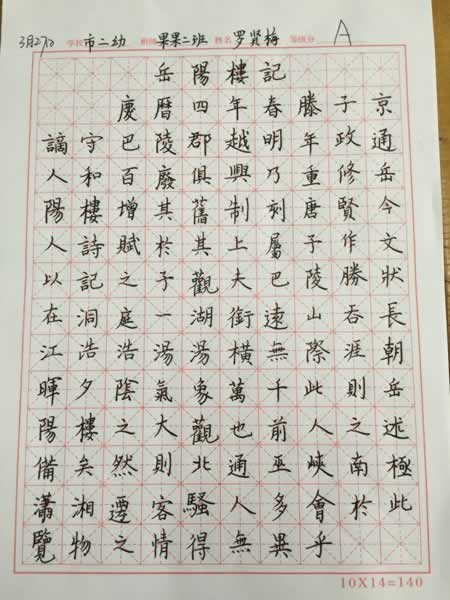 3月27日 学校 市二幼 班级 果果二班 姓名 罗贤梅 等级分 A
岳陽樓記
慶曆四年春滕子京
謫守巴陵郡越明年政通
人和百廢俱興乃重修岳
陽樓增其舊制刻唐賢今
人詩賦於其上屬子作文
以記之子觀夫巴陵勝狀
在洞庭一湖銜遠山吞長
江浩浩湯湯橫無際涯朝
暉夕陰氣象萬千此則岳
陽樓之大觀也前人之述
備矣然則北通巫峽南極
瀟湘遷客騷人多會於此
覽物之情得無異乎
10X14=140